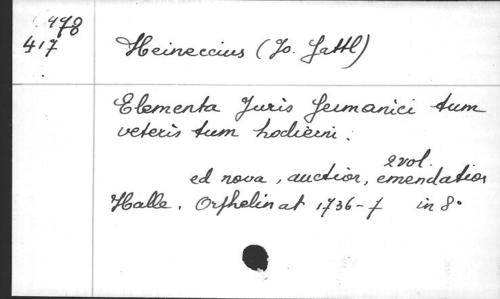 498
417
Heineccius (Jo. Gattl)
Elementa Juris Germanici tum
veteris tum hodierni.
2 vol.
ed nova, auctior, emendatior
Halle. Orphelinat 1736-7 in 8°